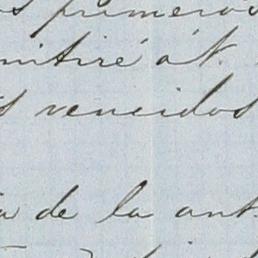 os primeros
mitiré á t.
s vencidos
a de la ant